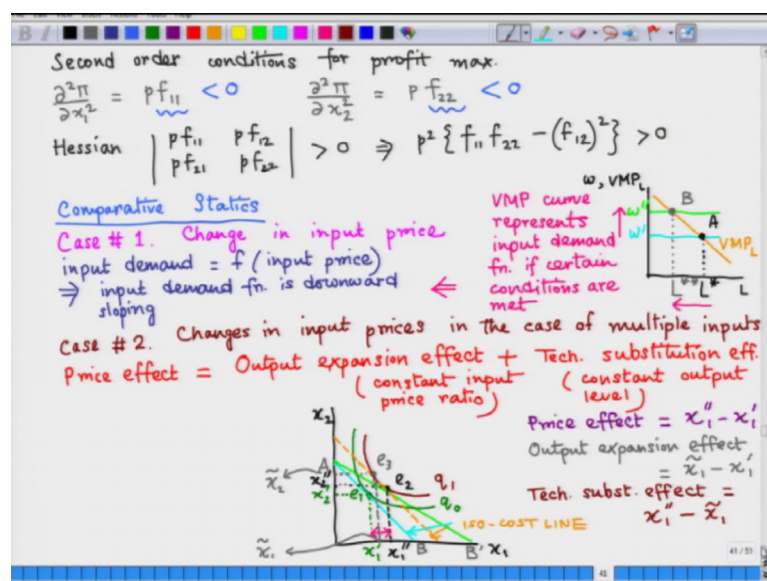 Second order conditions for profit max.
∂²π/∂x₁² = p f₁₁ < 0   ∂²π/∂x₂² = p f₂₂ < 0
Hessian | p f₁₁ p f₁₂ | > 0 ⇒ p² { f₁₁ f₂₂ − (f₁₂)² } > 0
| p f₂₁ p f₂₂ |
Comparative Statics
Case # 1. Change in input price
input demand = f (input price)
⇒ input demand fn. is downward
sloping
⇐
VMP curve
represents
input demand
fn. if certain
conditions are
met
w, VMP_L
B
w"
A
w'
VMP_L
L" L' L
Case # 2. Changes in input prices in the case of multiple inputs
Price effect = Output expansion effect + Tech. substitution eff.
(constant input price ratio)
(constant output level)
Price effect = x₁" − x₁'
Output expansion effect
= x̃₁ − x₁'
Tech. subst. effect =
x₁" − x̃₁
x₂
A
e₃
x̃₂
x₂"
e₂
q₁
x₂'
e₁
q₀
ISO-COST LINE
x̃₁
x₁' x₁" B B' x₁
41 / 51
41